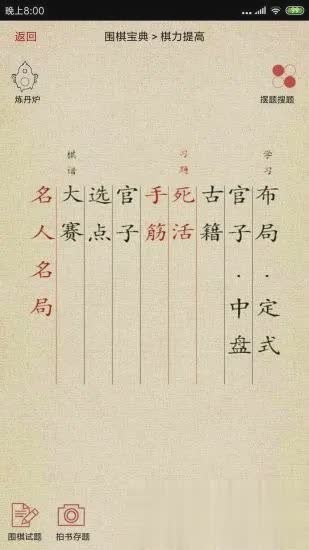 晚上8:00
99
返回
围棋宝典 > 棋力提高
炼丹炉
摆题搜题
学习
布局·定式
官子·中盘
古籍
习题
死活
手筋
官子
选点
棋谱
大赛
名人名局
围棋试题
拍书存题